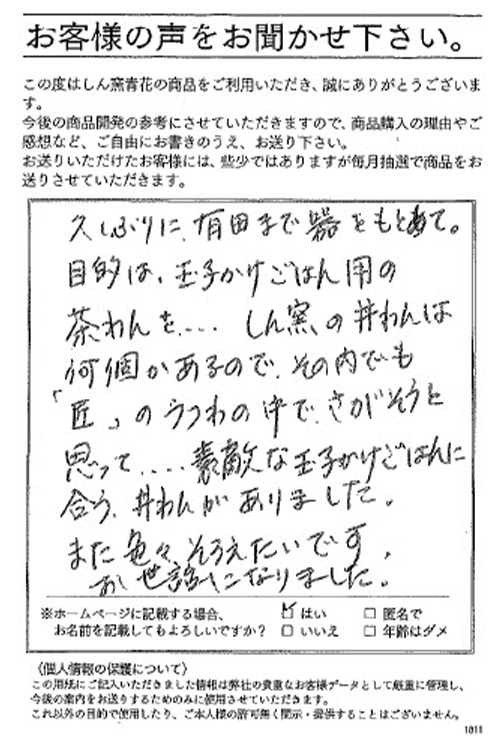 お客様の声をお聞かせ下さい。
この度はしん窯青花の商品をご利用いただき、誠にありがとうございま
す。
今後の商品開発の参考にさせていただきますので、商品購入の理由やご
感想など、ご自由にお書きのうえ、お送り下さい。
お送りいただけたお客様には、些少ではありますが毎月抽選で商品をお
送りさせていただきます。
久しぶりに、有田まで器をもとめて。
目的は、玉子かけごはん用の
茶わんを.... しん窯の丼わんは
何個かあるので、その内でも
「匠」のうつわの中で、さがそうと
思って....素敵な玉子かけごはんに
合う、丼わんがありました。
また色々そろえたいです。
お世話になりました。
※ホームページに記載する場合、 ☑ はい □ 匿名で
お名前を記載してもよろしいですか? □ いいえ □ 年齢はダメ
〈個人情報の保護について〉
この用紙にご記入いただきました情報は弊社の貴重なお客様データとして厳重に管理し、
今後の案内をお送りするためのみに使用させていただきます。
これ以外の目的で使用したり、ご本人様の許可無く開示・提供することはございません。
1011